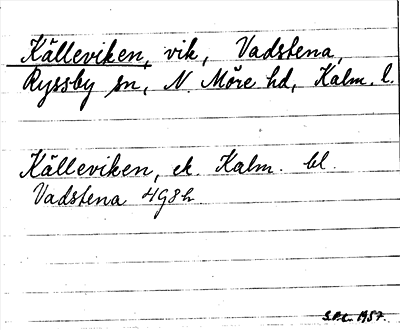 Källeviken, vik, Vadstena,
Ryssby sn, N. Möre hd, Kalm. l.
Källeviken, ek. Kalm. bl.
Vadstena 4G8h
1957.